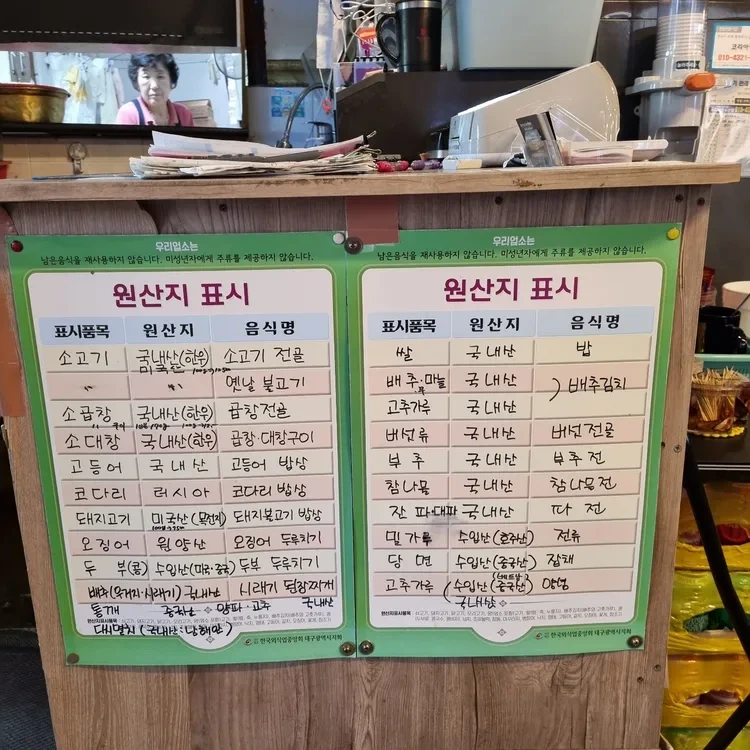 우리업소는
남은음식을 재사용하지 않습니다. 미성년자에게 주류를 제공하지 않습니다.
원산지 표시
표시품목 원산지 음식명
소고기 국내산(한우) 소고기 전골
미국산
〃 〃 옛날 불고기
소곱창 국내산(한우) 곱창전골
소대창 국내산(한우) 곱창·대창구이
고등어 국내산 고등어 밥상
코다리 러시아 코다리 밥상
돼지고기 미국산(목전지) 돼지불고기 밥상
오징어 원양산 오징어 두루치기
두부(콩) 수입산(미국·중국) 두부 두루치기
배추(우거지·시래기) 국내산 시래기 된장찌개
들깨 중국산 양파·고추 국내산
대멸치(국내산:남해안)
원산지표시품목
한국외식업중앙회 대구광역시지회
우리업소는
남은음식을 재사용하지 않습니다. 미성년자에게 주류를 제공하지 않습니다.
원산지 표시
표시품목 원산지 음식명
쌀 국내산 밥
배추·마늘 국내산 ) 배추김치
고추가루 국내산
버섯류 국내산 버섯전골
부추 국내산 부추전
참나물 국내산 참나물전
잔파·대파 국내산 파전
밀가루 수입산(호주산) 전류
당면 수입산(중국산) 잡채
(베트남)
고추가루 (수입산(중국산) 양념
국내산
원산지표시품목
한국외식업중앙회 대구광역시지회
코리아
010-4321-